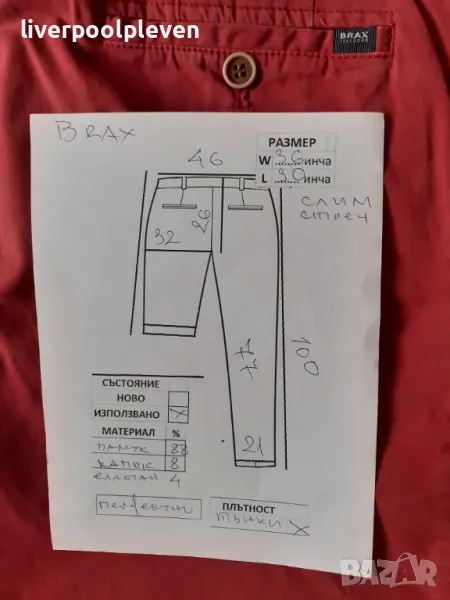 liverpoolpleven
BRAX
FEEL GOOD
BRAX
РАЗМЕР
W 36 инча
L 30 инча
46
СЛИМ
СТРЕЧ
26
32
100
77
21
СЪСТОЯНИЕ
НОВО
ИЗПОЛЗВАНО X
МАТЕРИАЛ %
ПАМУК 88
КАПОК 8
ЕЛАСТАН 4
ПЕРФЕКТНИ
ПЛЪТНОСТ
ТЪНКИ X
BAZAR